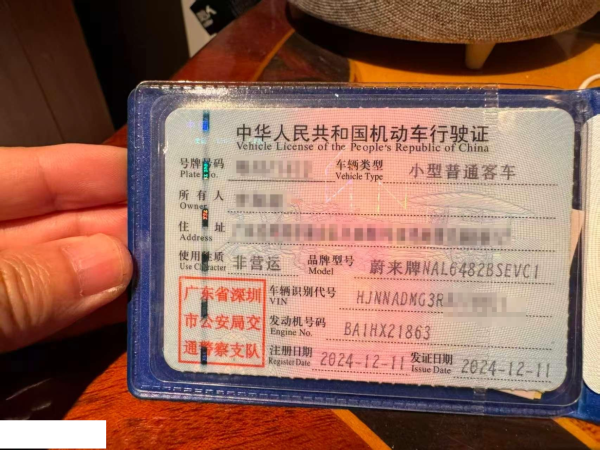 中华人民共和国机动车行驶证
Vehicle License of the People's Republic of China
号牌号码
Plate No.
车辆类型 小型普通客车
Vehicle Type
所有人
Owner
住址
Address
使用性质 非营运
Use Character
品牌型号 蔚来牌NAL6482BSEVC1
Model
广东省深圳
市公安局交
通警察支队
车辆识别代号 HJNNADMG3R
VIN
发动机号码 BA1HX21863
Engine No.
注册日期 2024-12-11
Register Date
发证日期 2024-12-11
Issue Date